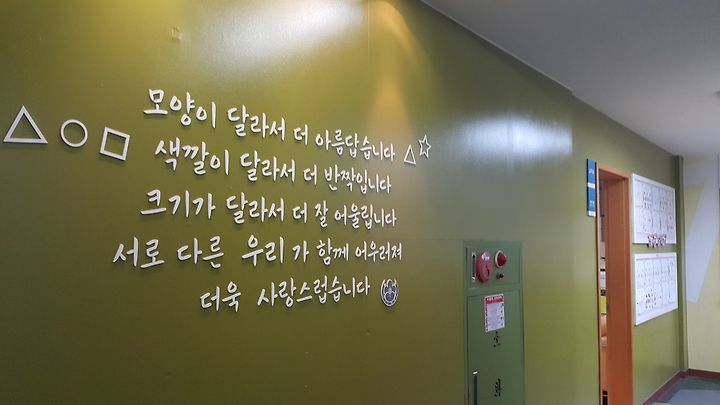 모양이 달라서 더 아름답습니다
색깔이 달라서 더 반짝입니다
크기가 달라서 더 잘 어울립니다
서로 다른 우리가 함께 어우러져
더욱 사랑스럽습니다
소화전